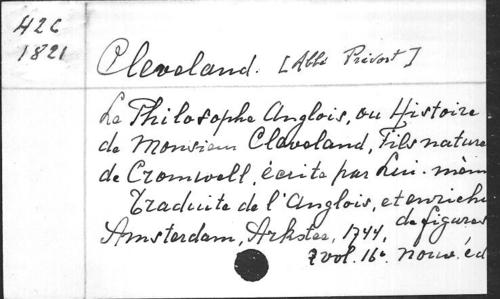 426
1821
Cleveland. [Abbé Prévost]
Le Philosophe Anglois, ou Histoire
de Monsieur Cleveland, Fils nature
de Cromwell, écrite par Lui-mêm
Traduite de l'Anglois, et enrichi
de figures
Amsterdam, Arkstee, 1744,
vol. 16º. nouv. éd